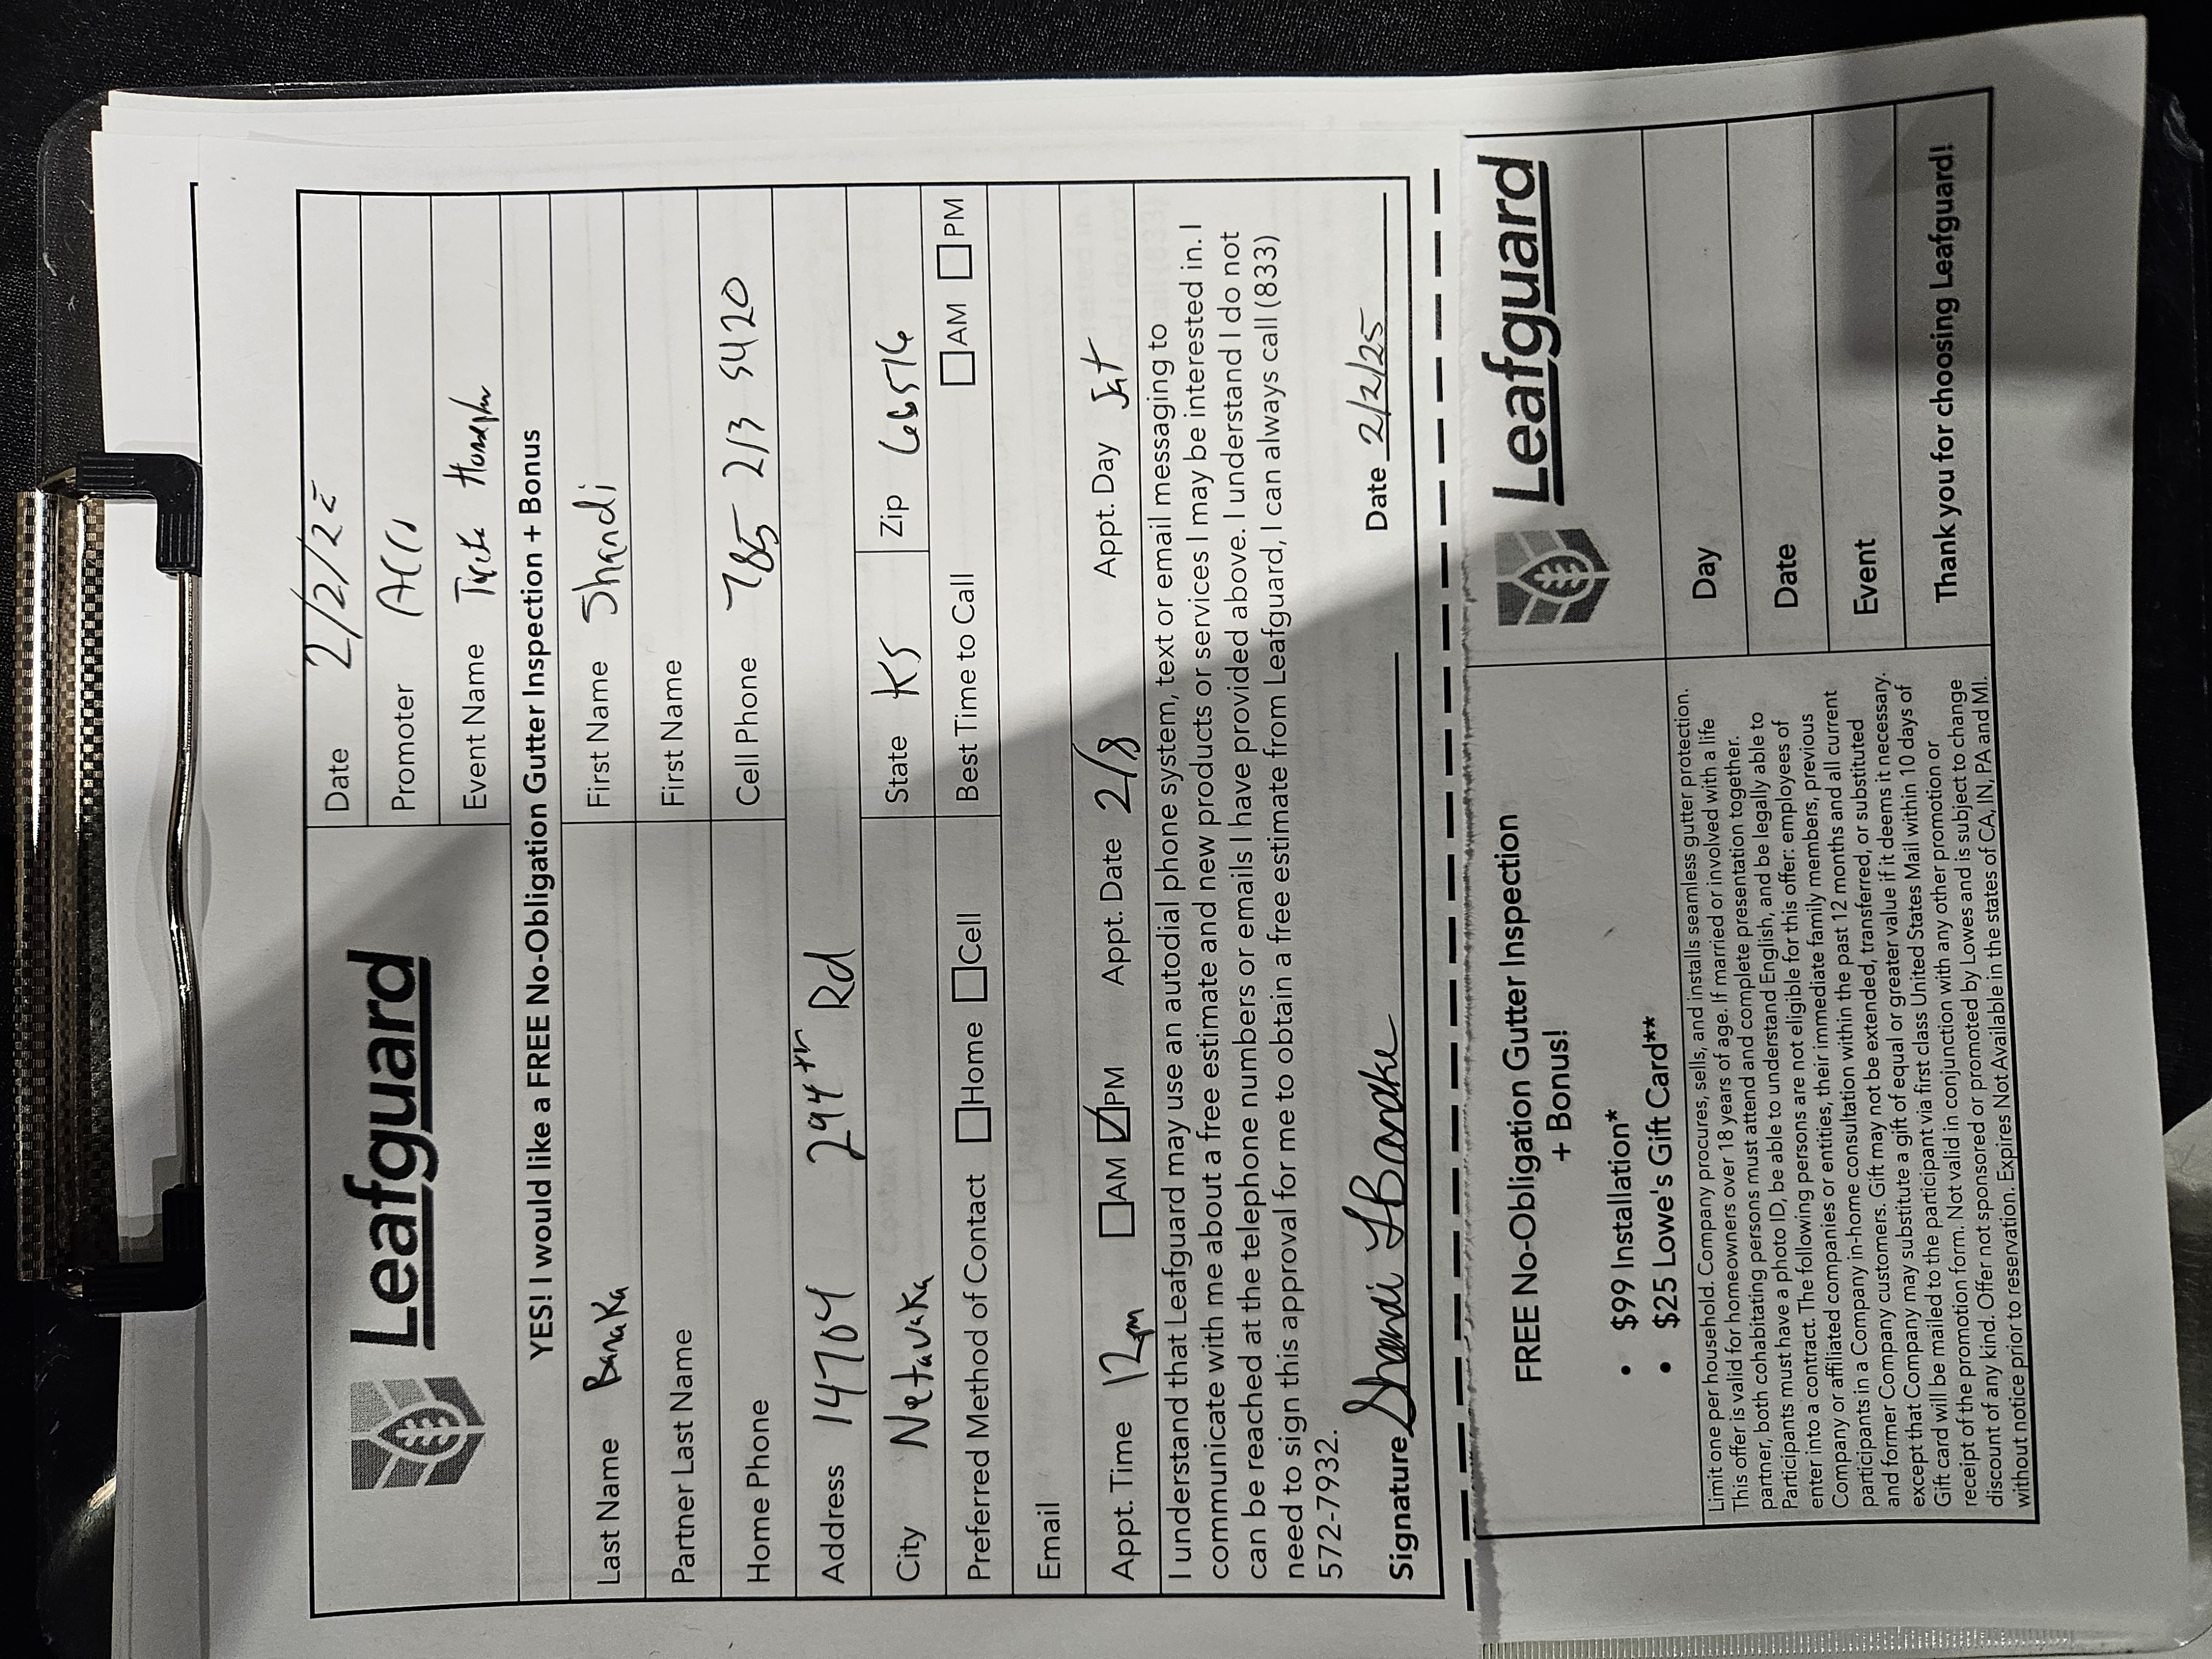 Leafguard
Date 2/2/25
Promoter
Event Name
YES! I would like a FREE No-Obligation Gutter Inspection + Bonus
Last Name Banaka First Name Shandi
Partner Last Name First Name
Home Phone Cell Phone 785 213 5420
Address 14704 294th Rd
City Netavaka State KS Zip 66516
Preferred Method of Contact Home Cell Best Time to Call AM PM
Email
Appt. Time 12pm AM PM Appt. Date 2/8 Appt. Day Sat
I understand that Leafguard may use an autodial phone system, text or email messaging to
communicate with me about a free estimate and new products or services I may be interested in. I
can be reached at the telephone numbers or emails I have provided above. I understand I do not
need to sign this approval for me to obtain a free estimate from Leafguard, I can always call (833)
572-7932.
Signature Shandi Date 2/2/25
FREE No-Obligation Gutter Inspection
+ Bonus!
• $99 Installation*
• $25 Lowe's Gift Card**
Limit one per household. Company procures, sells, and installs seamless gutter protection.
This offer is valid for homeowners over 18 years of age. If married or involved with a life
partner, both cohabitating persons must attend and complete presentation together.
Participants must have a photo ID, be able to understand English, and be legally able to
enter into a contract. The following persons are not eligible for this offer: employees of
Company or affiliated companies or entities, their immediate family members, previous
participants in a Company in-home consultation within the past 12 months and all current
and former Company customers. Gift may not be extended, transferred, or substituted
except that Company may substitute a gift of equal or greater value if it deems it necessary.
Gift card will be mailed to the participant via first class United States Mail within 10 days of
receipt of the promotion form. Not valid in conjunction with any other promotion or
discount of any kind. Offer not sponsored or promoted by Lowes and is subject to change
without notice prior to reservation. Expires Not Available in the states of CA, IN, PA and MI.
Leafguard
Day
Date
Event
Thank you for choosing Leafguard!